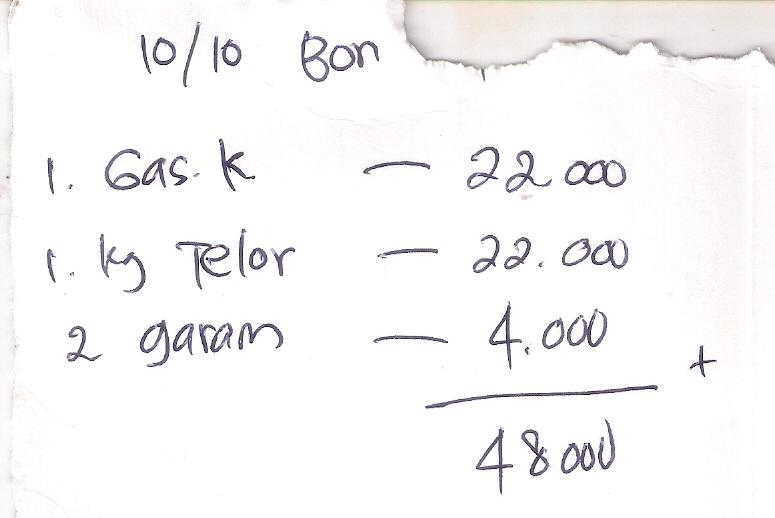 10/10 Bon
1. Gas. k — 22 000
1. kg Telor — 22.000
2 garam — 4.000
+
48 000